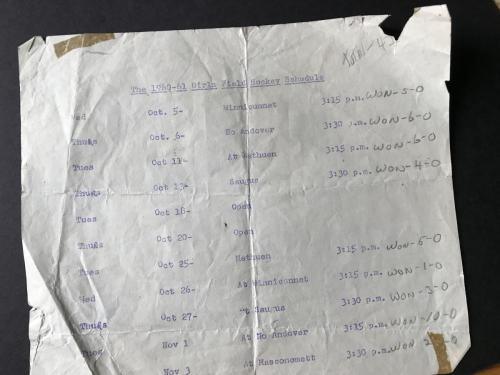 Total-4-
The 1960-61 Girls Field Hockey Schedule
Wed Oct. 5- Winnicunnet 3:15 p.m. WON-5-0
Thurs Oct. 6- No Andover 3:30 p.m. WON-6-0
Tues Oct 11- At Methuen 3:15 p.m. WON-6-0
Thurs Oct 13- Saugus 3:30 p.m. WON-4-0
Tues Oct 18- Open
Thurs Oct 20- Open
Tues Oct 25- Methuen 3:15 p.m. WON-5-0
Wed Oct 26- At Winnicunnet 3:15 p.m. WON-1-0
Thurs Oct 27- At Saugus 3:30 p.m. WON-3-0
Tues Nov 1 At No Andover 3:15 p.m. WON-10-0
Nov 3 At Masconomett 3:30 p.m. WON